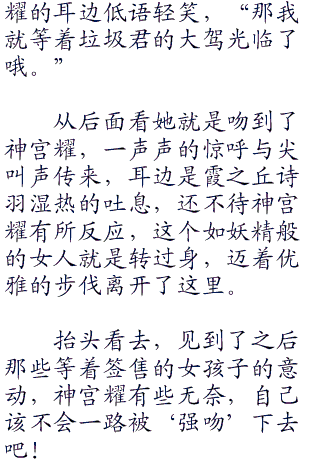 耀的耳边低语轻笑，“那我
就等着垃圾君的大驾光临了
哦。”
从后面看她就是吻到了
神宫耀，一声声的惊呼与尖
叫声传来，耳边是霞之丘诗
羽湿热的吐息，还不待神宫
耀有所反应，这个如妖精般
的女人就是转过身，迈着优
雅的步伐离开了这里。
抬头看去，见到了之后
那些等着签售的女孩子的意
动，神宫耀有些无奈，自己
该不会一路被‘强吻’下去
吧！